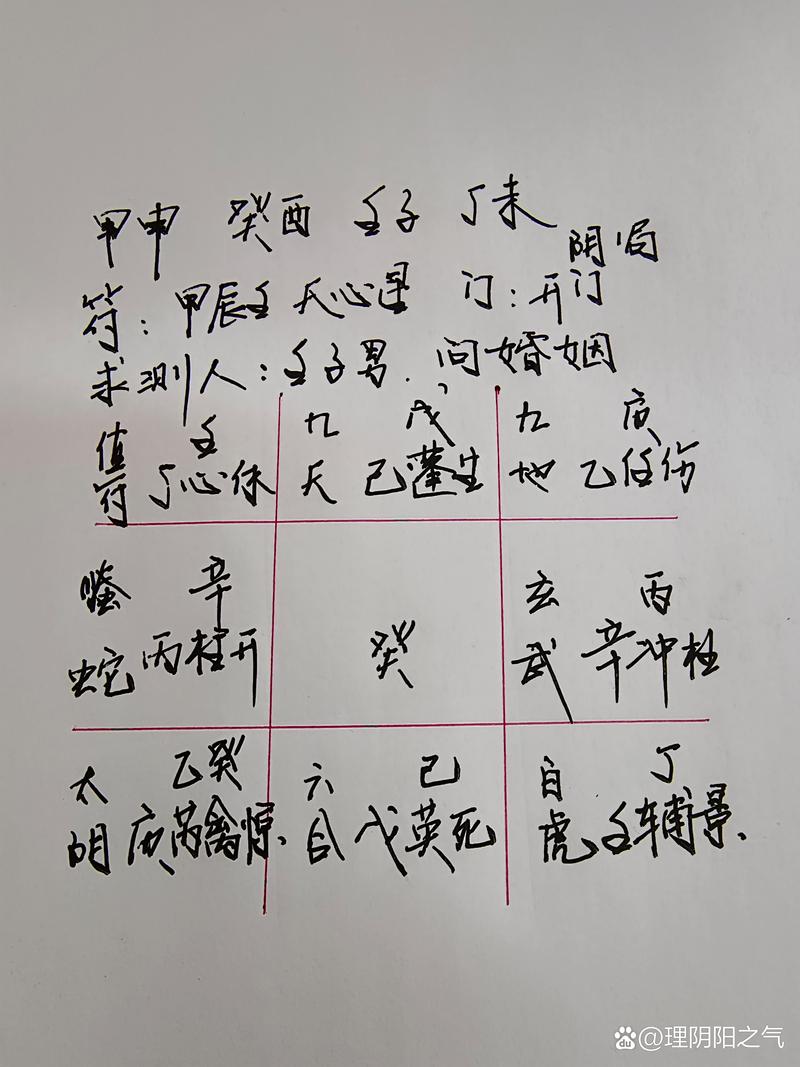 甲申 癸酉 壬子 丁未
阴1局
符：甲辰壬 天心星 门：开门
求测人：壬子男，问婚姻
值 壬 九 戊 九 庚
符 丁心休 天 己蓬生 地 乙任伤
螣 辛 玄 丙
蛇 丙柱开 癸 武 辛冲杜
太 乙癸 六 己 白 丁
阴 庚芮禽惊、 合 戊英死 虎 壬辅景、
@理阴阳之气